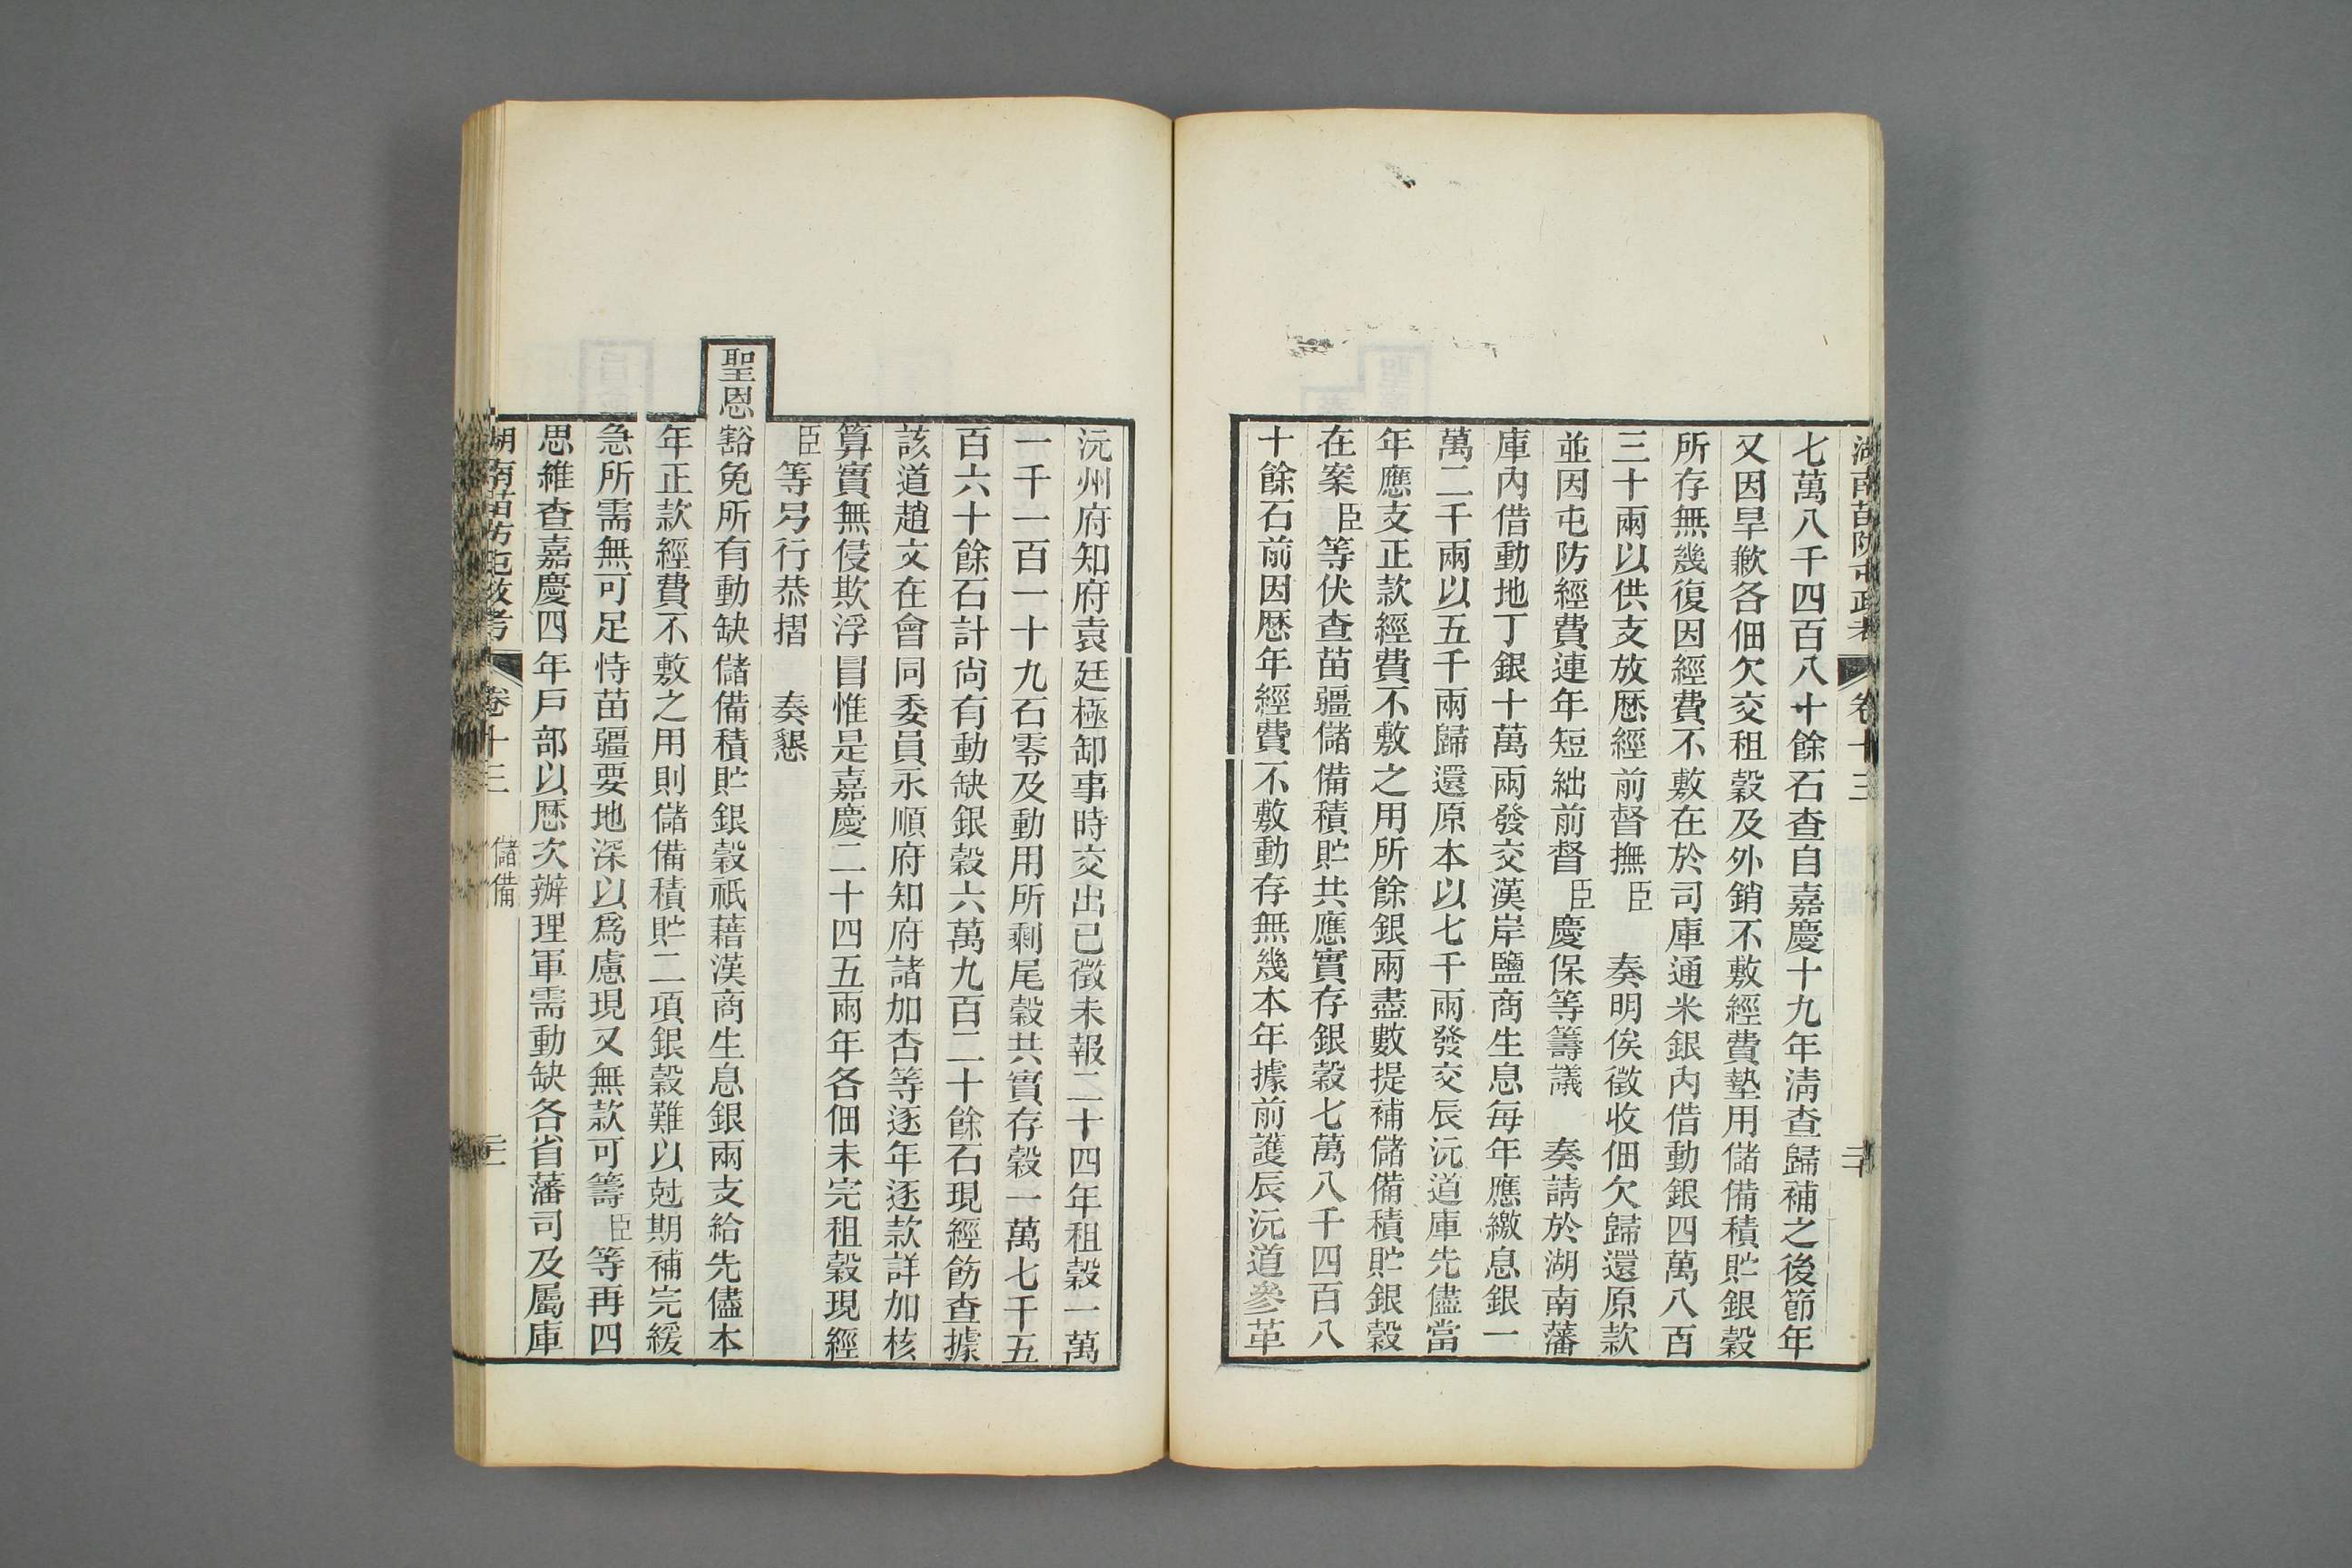 湖南苗防屯政考 卷十三 二十
七萬八千四百八十餘石查自嘉慶十九年淸查歸補之後節年
又因旱歉各佃欠交租穀及外銷不敷經費墊用儲備積貯銀穀
所存無幾復因經費不敷在於司庫通米銀內借動銀四萬八百
三十兩以供支放歷經前督撫臣 奏明俟徵收佃欠歸還原款
並因屯防經費連年短絀前督臣慶保等籌議 奏請於湖南藩
庫內借動地丁銀十萬兩發交漢岸鹽商生息每年應繳息銀一
萬二千兩以五千兩歸還原本以七千兩發交辰沅道庫先儘當
年應支正款經費不敷之用所餘銀兩盡數提補儲備積貯銀穀
在案臣等伏查苗疆儲備積貯共應實存銀穀七萬八千四百八
十餘石前因歷年經費不敷動存無幾本年據前護辰沅道參革
沅州府知府袁廷極卸事時交出已徵未報二十四年租穀一萬
一千一百一十九石零及動用所剩尾穀共實存穀一萬七千五
百六十餘石計尙有動缺銀穀六萬九百二十餘石現經飭查據
該道趙文在會同委員永順府知府諸加杏等逐年逐款詳加核
算實無侵欺浮冒惟是嘉慶二十四五兩年各佃未完租穀現經
臣等另行恭摺 奏懇
聖恩豁免所有動缺儲備積貯銀穀祇藉漢商生息銀兩支給先儘本
年正款經費不敷之用則儲備積貯二項銀穀難以尅期補完緩
急所需無可足恃苗疆要地深以爲慮現又無款可籌臣等再四
思維查嘉慶四年戶部以歷次辦理軍需動缺各省藩司及屬庫
湖南苗防屯政考 卷十三 儲備 二十一